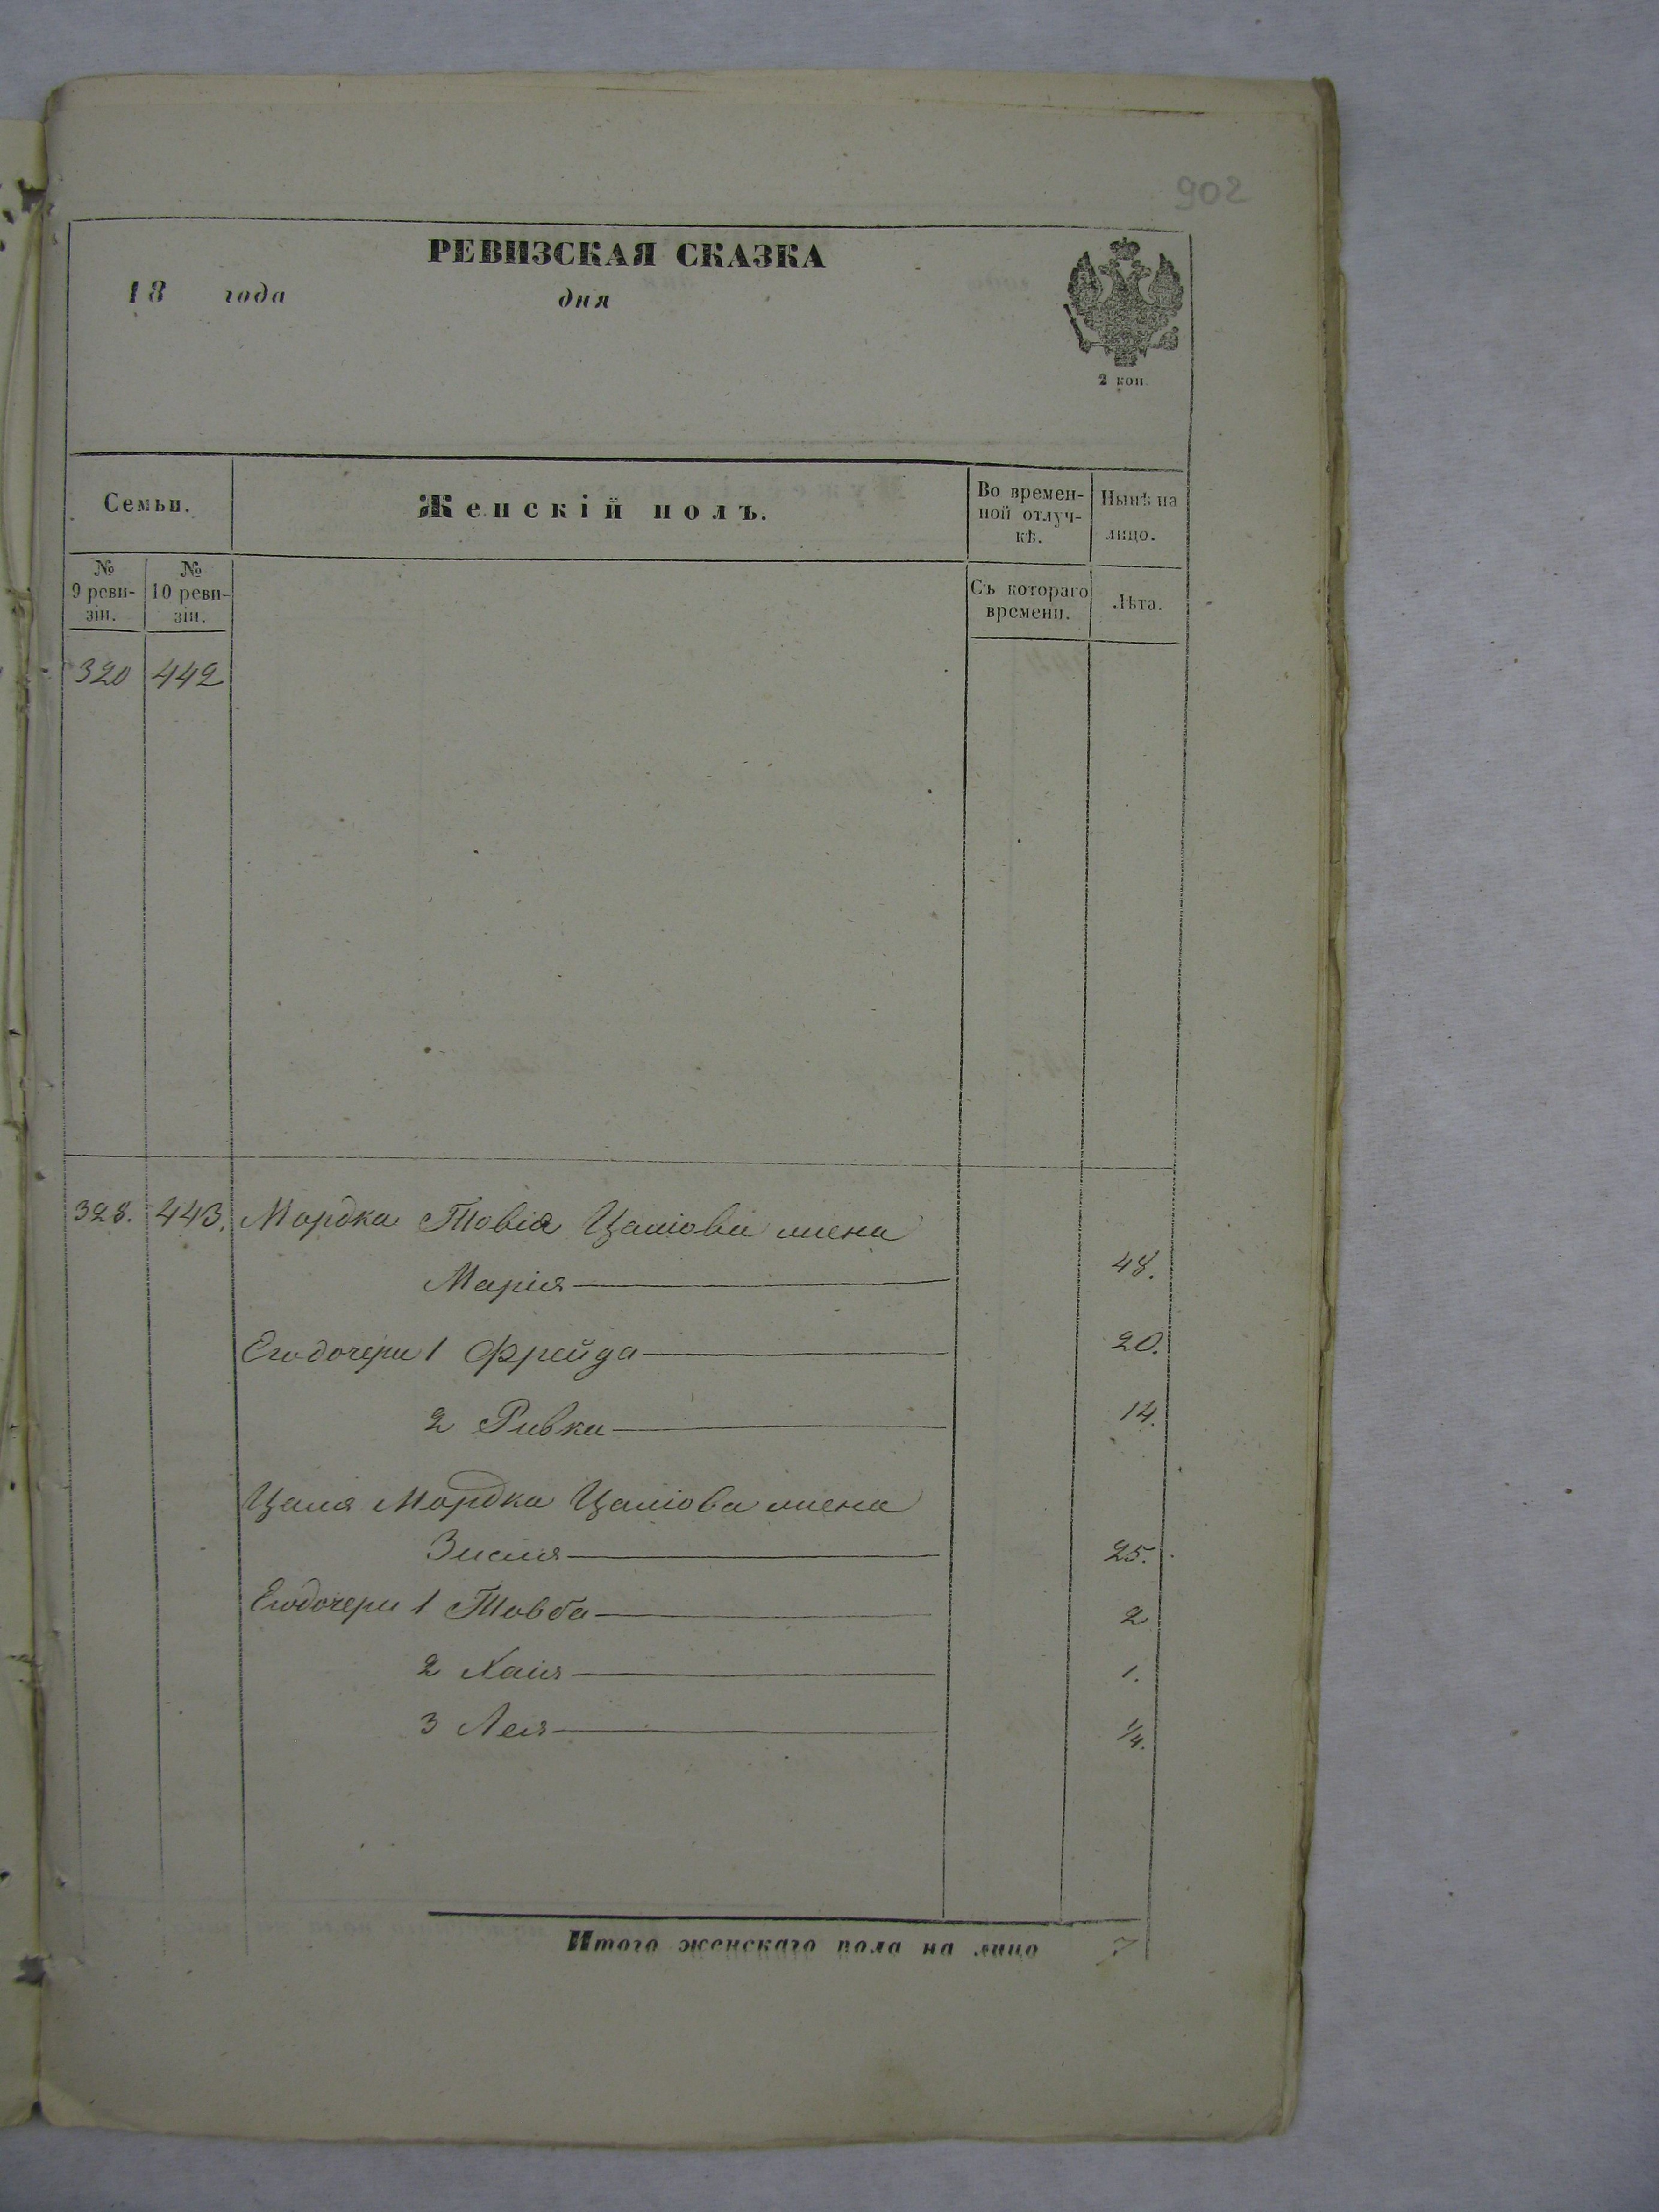 902
РЕВИЗСКАЯ СКАЗКА
18 года дня
2 коп.
Семьи.
Женскій полъ.
Во времен-
ной отлуч-
кѣ.
Нынѣ на
лицо.
№
9 реви-
зіи.
№
10 реви-
зіи.
Съ котораго
времени.
Лѣта.
320 442
328. 443. Мордка Товіа жена
Марія 48.
Его дочери 1 Фрейда 20.
2 Ривка 14.
Мордка жена
25.
Его дочери 1 Товба 2
2 Хаія 1.
3 Лея 1/4.
Итого женскаго пола на лицо 7